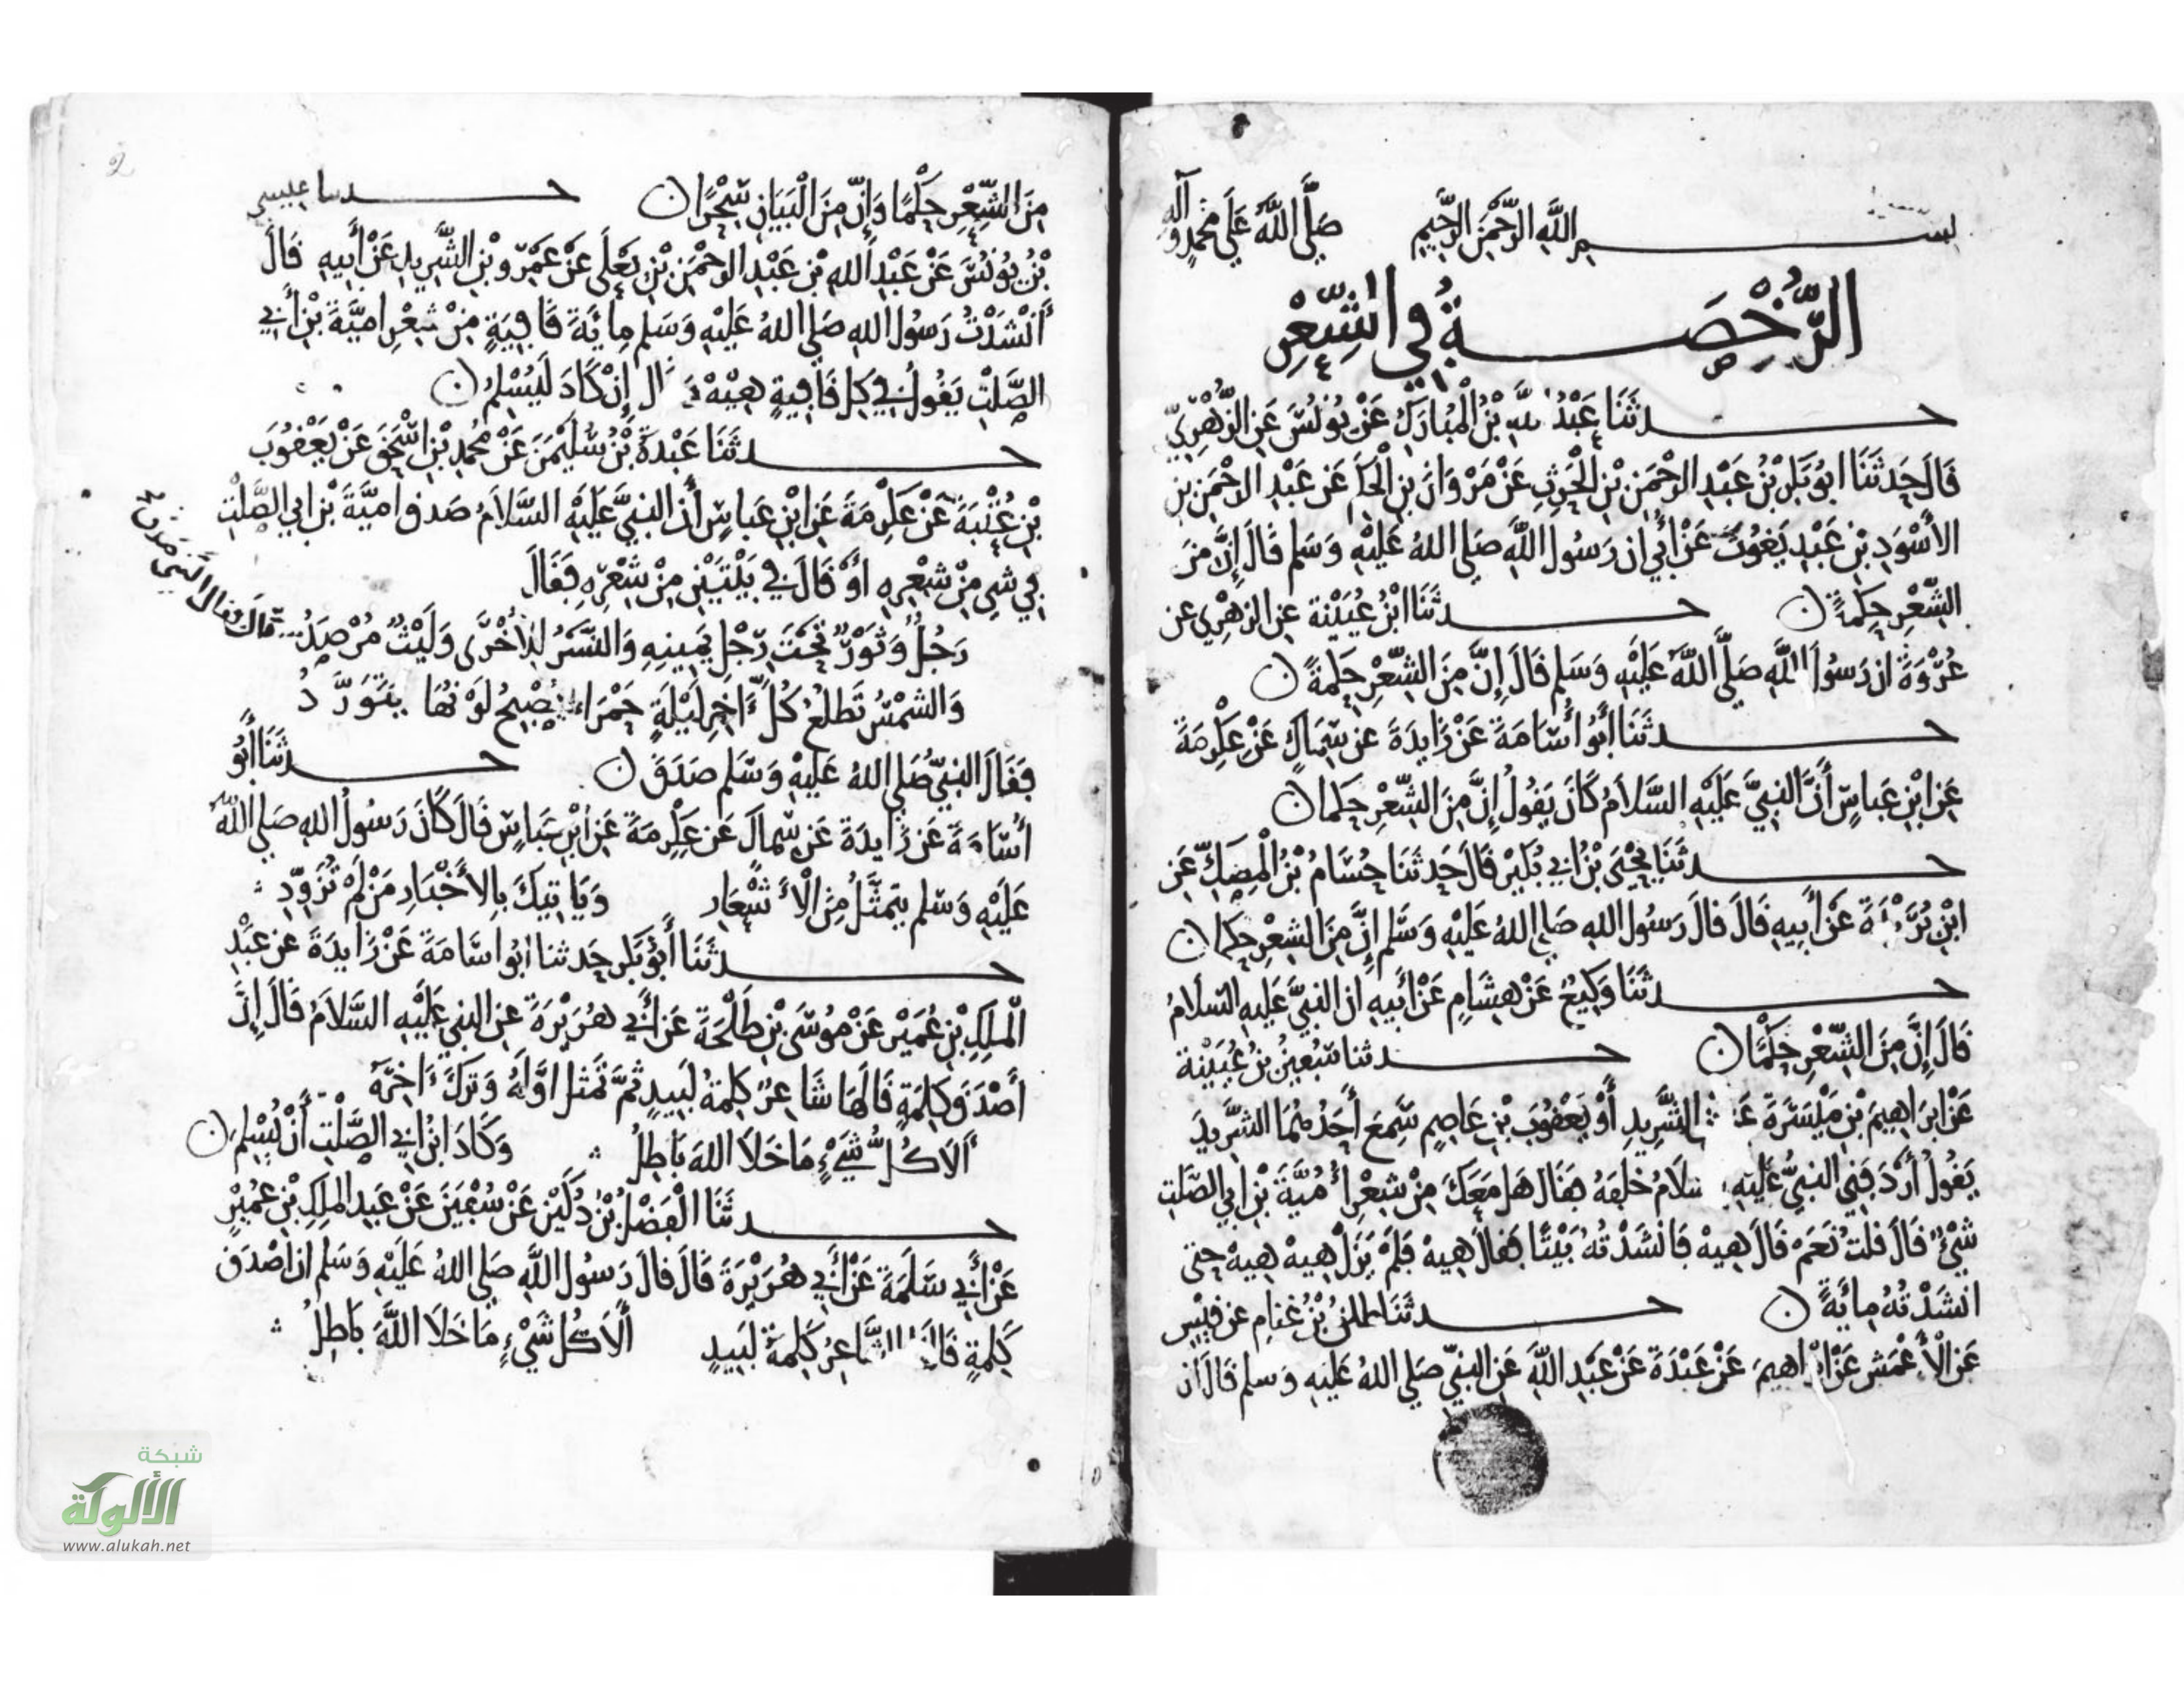 بسم الله الرحمن الرحيم صلى الله على محمد وآله
الرُّخْصَة في الشِّعْرِ
حدثنا عبد الله بن المبارك عن يونس عن الزهري
قال حدثنا ابو بكر بن عبد الرحمن بن الحرث عن مروان بن الحكم عن عبد الرحمن بن
الأسود بن عبد يغوث عن أبي ان رسول الله صلى الله عليه وسلم قال إن من
الشعر حكمة ن حدثنا ابن عيينة عن الزهري عن
عروة ان رسول الله صلى الله عليه وسلم قال إن من الشعر حكمة ن
حدثنا أبو أسامة عن زايدة عن سماك عن عكرمة
عن ابن عباس أن النبي عليه السلام كان يقول إن من الشعر حكما ن
حدثنا يحيى بن ابي بكير قال حدثنا حسام بن المصك عن
ابن بريدة عن أبيه قال قال رسول الله صلى الله عليه وسلم إن من الشعر حكما ن
حدثنا وكيع عن هشام عن أبيه ان النبي عليه السلام
قال إن من الشعر حكما ن حدثنا سفين بن عيينة
عن ابراهيم بن ميسرة عن الشريد أو يعقوب بن عاصم سمع أحدهما الشريد
يقول أردفني النبي عليه السلام خلفه فقال هل معك من شعر أمية بن ابي الصلت
شيء قال قلت نعم قال هيه فانشدته بيتا فقال هيه فلم يزل هيه هيه حتى
انشدته مائة ن حدثنا طلق بن غنام عن قيس
عن الأعمش عن ابراهيم عن عبدة عن عبد الله عن النبي صلى الله عليه وسلم قال ان
من الشعر حكما وإن من البيان سحرا ن حدثنا عيسى
بن يونس عن عبد الله بن عبد الرحمن بن يعلى عن عمرو بن الشريد عن أبيه قال
أنشدت رسول الله صلى الله عليه وسلم مائة قافية من شعر امية بن أبي
الصلت يقول في كل قافية هيه قال إن كاد ليسلم ن
حدثنا عبدة بن سليمن عن محمد بن اسحق عن يعقوب
بن عتبة عن عكرمة عن ابن عباس أن النبي عليه السلام صدق امية بن ابي الصلت
في شي من شعره أو قال في بيتين من شعره فقال
رجل وثور تحت رجل يمينه والنسر للأخرى وليث مرصد
قال فقال النبي صدق
والشمس تطلع كل ءاخر ليلة حمراء يصبح لونها يتورد
فقال النبي صلى الله عليه وسلم صدق ن حدثنا أبو
أسامة عن زايدة عن سماك عن عكرمة عن ابن عباس قال كان رسول الله صلى الله
عليه وسلم يتمثل من الأشعار ويأتيك بالأخبار من لم تزود
حدثنا أبو بكر حدثنا ابو اسامة عن زايدة عن عبد
الملك بن عمير عن موسى بن طلحة عن أبي هريرة عن النبي عليه السلام قال إن
أصدق كلمة قالها شاعر كلمة لبيد ثم تمثل اوله وترك ءاخره
ألا كل شيء ما خلا الله باطل وكاد ابن ابي الصلت أن يسلم ن
حدثنا الفضل بن دكين عن سفين عن عبد الملك بن عمير
عن أبي سلمة عن أبي هريرة قال قال رسول الله صلى الله عليه وسلم ان اصدق
كلمة قالها الشاعر كلمة لبيد ألا كل شيء ما خلا الله باطل
2
شبكة
الألوكة
www.alukah.net